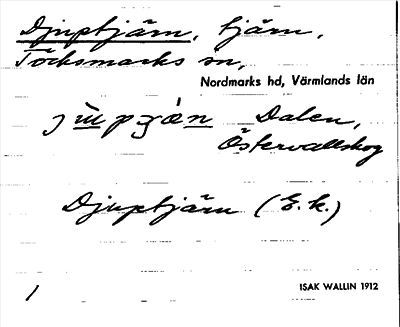 Djuptjärn, tjärn,
Töcksmarks sn,
Nordmarks hd, Värmlands län
Dalen,
Östervallskog
Djuptjärn (E.k.)
1
ISAK WALLIN 1912